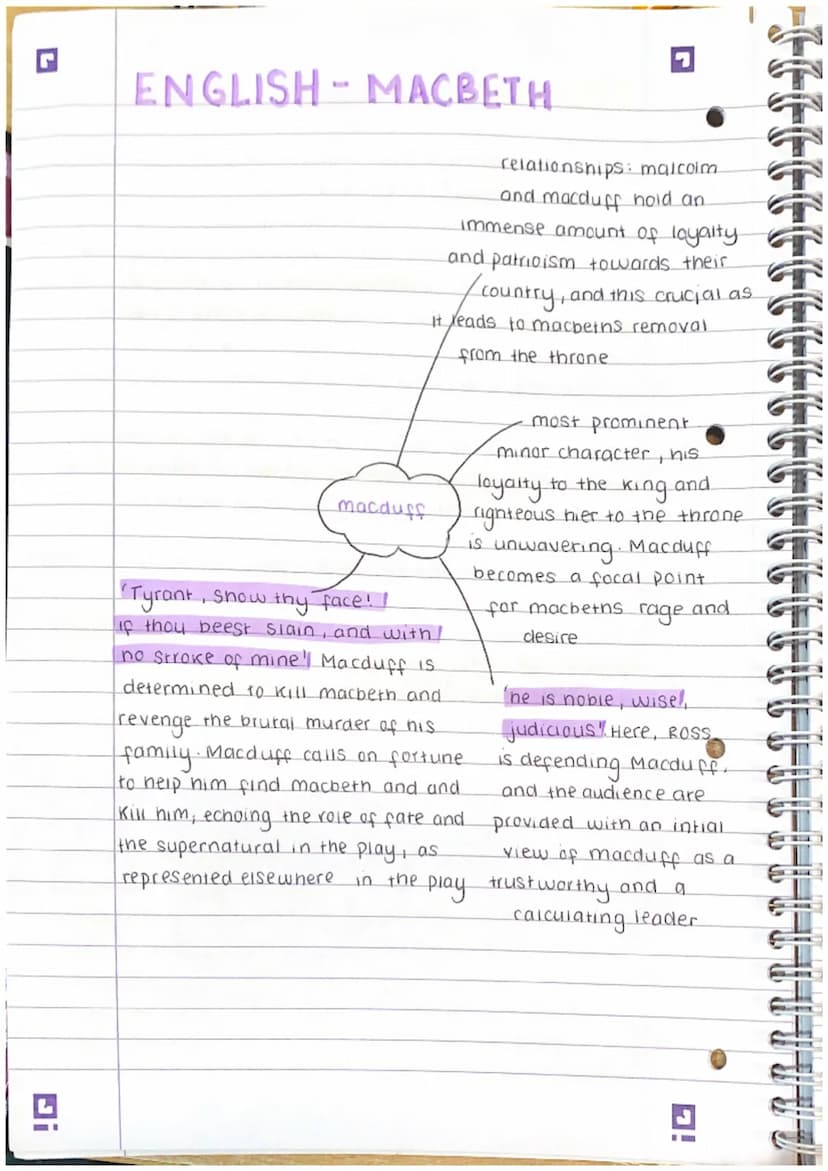 ENGLISH - MACBETH
relationships: malcolm
and macduff hold an
immense amount of loyalty
and patrioism towards their
country, and this crucial as
it leads to macbeths removal
from the throne
most prominent
minor character, his
loyalty to the king and
righteous hier to the throne
is unwavering. Macduff
becomes a focal point
for macbeths rage and
desire
macduff
'Tyrant, show thy face!
if thou beest slain, and with
no stroke of mine' Macduff is
determined to kill macbeth and
revenge the brutal murder of his
family. Macduff calls on fortune
to help him find macbeth and and
kill him, echoing the role of fate and
the supernatural in the play, as
represented elsewhere in the play
'he is noble, wise,
judicious' Here, ROSS
is defending Macduff,
and the audience are
provided with an intial
view of macduff as a
trustworthy and a
calculating leader